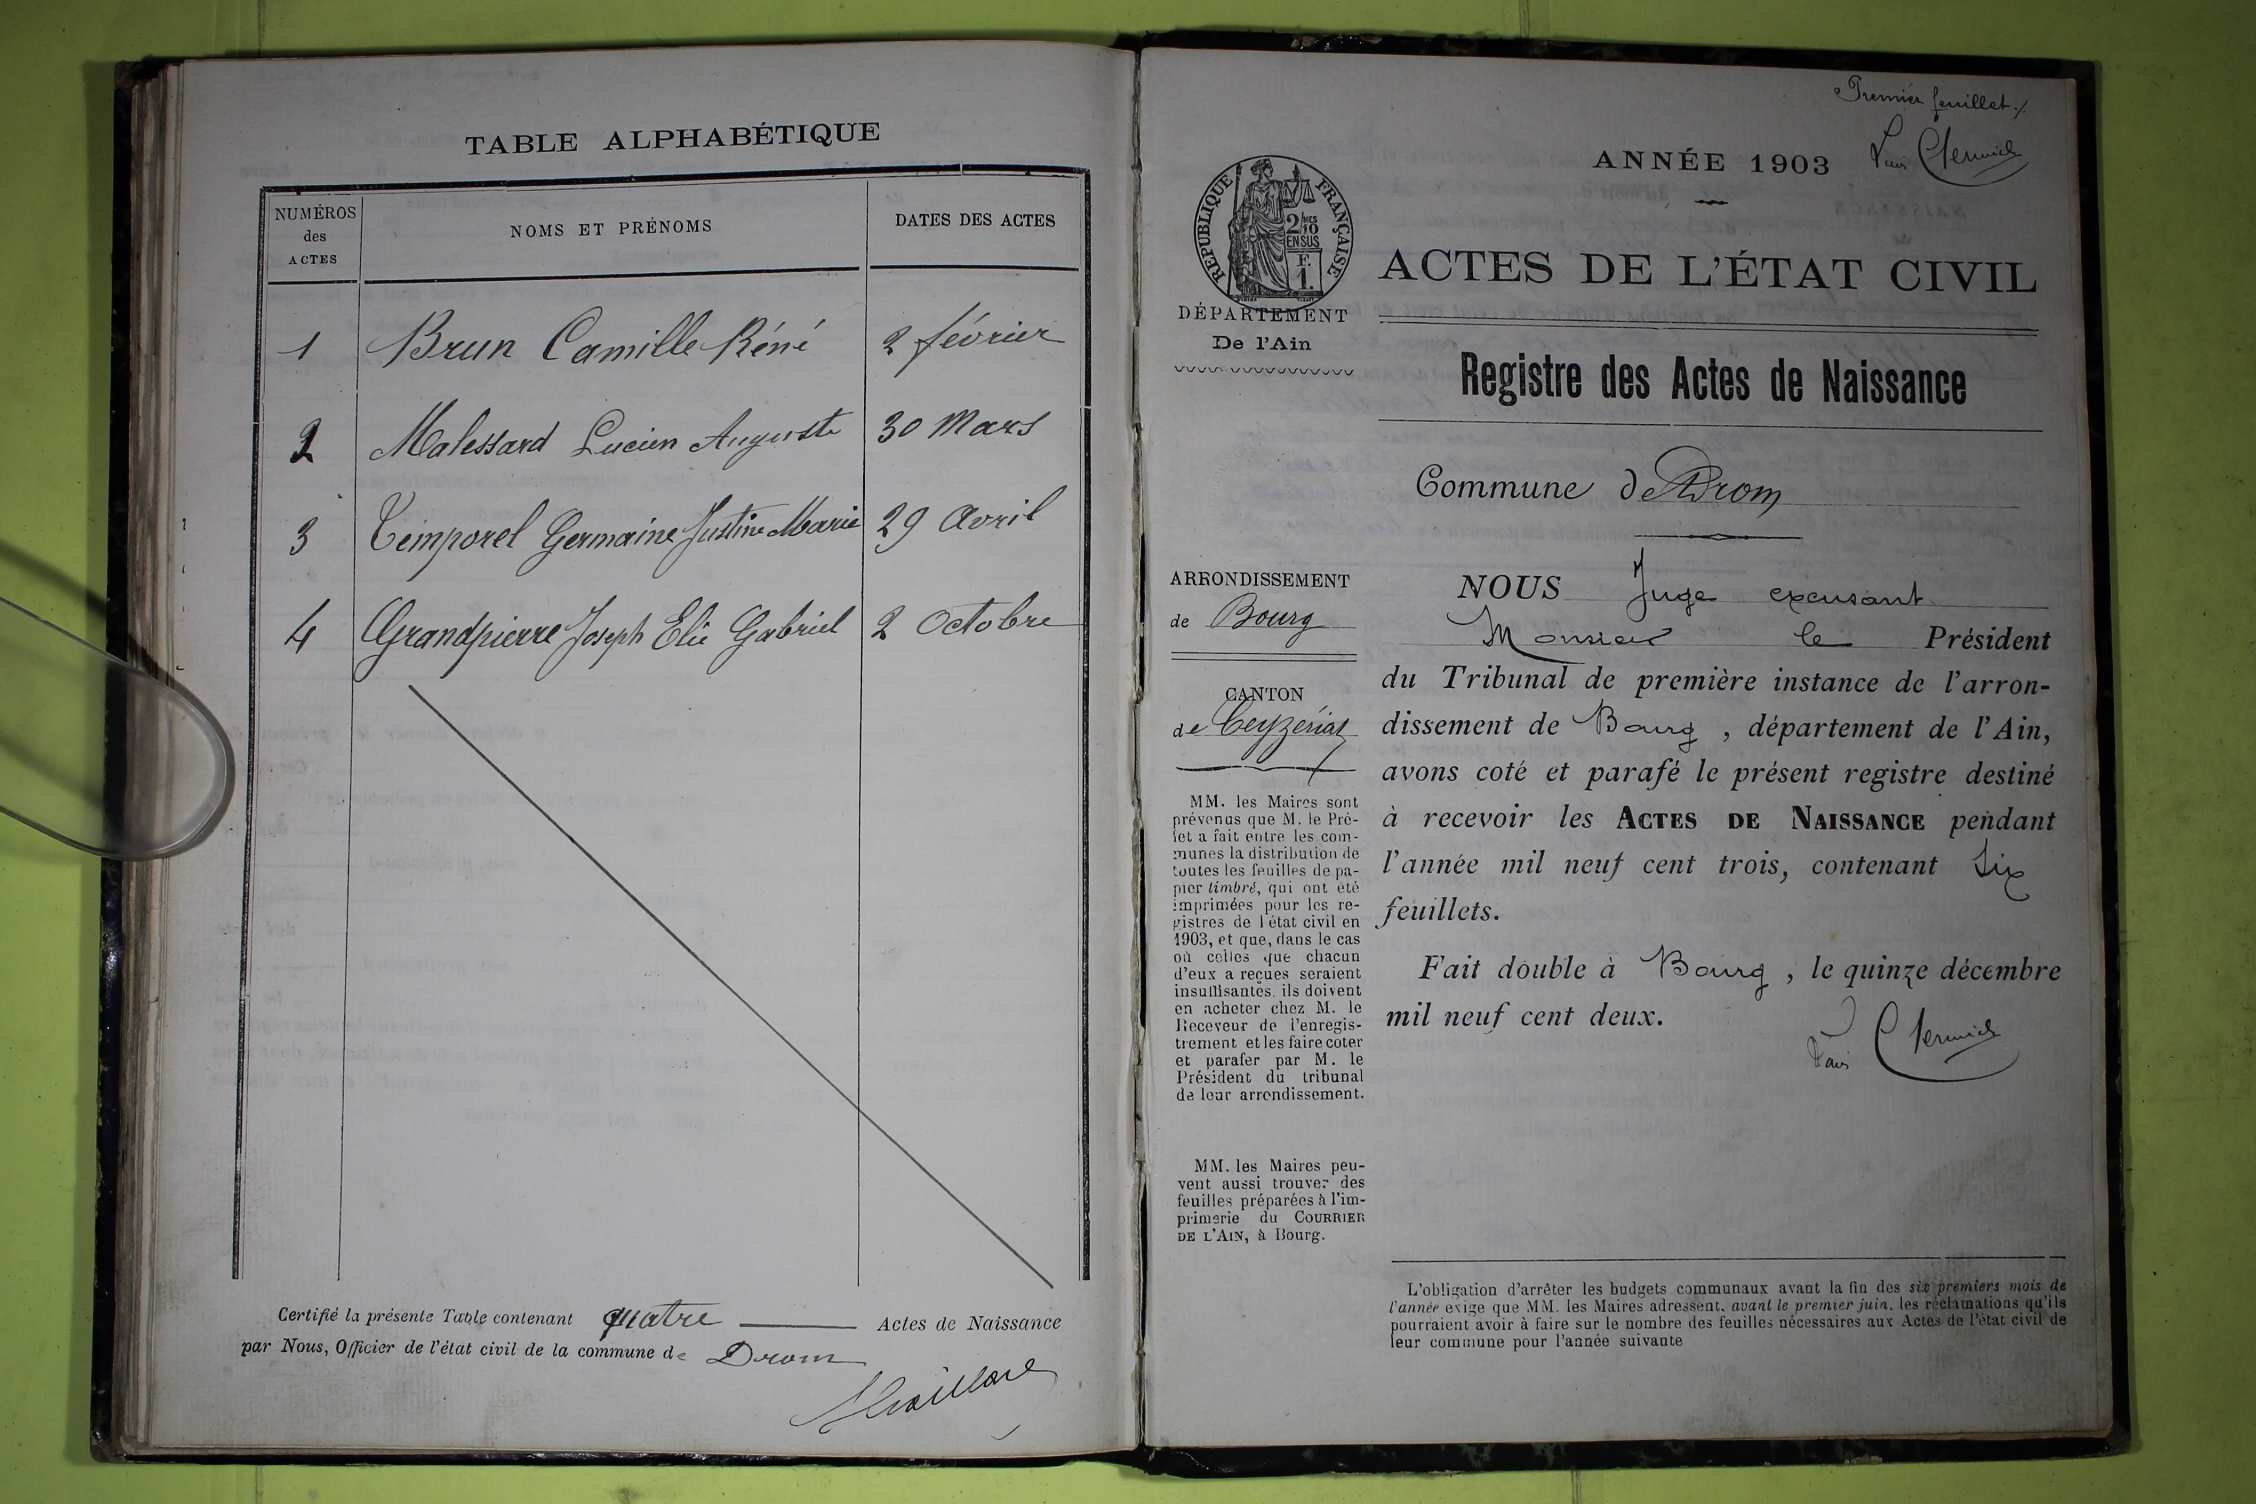 TABLE ALPHABÉTIQUE
NUMÉROS
des
ACTES
NOMS ET PRÉNOMS
DATES DES ACTES
1 Brun Camille Réné 2 février
2 Malessard Lucien Auguste 30 Mars
3 Temporel Germaine Justine Marie 29 Avril
4 Grandpierre Joseph Elie Gabriel 2 Octobre
Certifié la présente Table contenant quatre Actes de Naissance
par Nous, Officier de l'état civil de la commune de Drom
Premier feuillet
ANNÉE 1903
RÉPUBLIQUE FRANÇAISE
2/10
EN SUS
F.
1.
ACTES DE L'ÉTAT CIVIL
DÉPARTEMENT
De l'Ain
Registre des Actes de Naissance
Commune de Drom
ARRONDISSEMENT
de Bourg
CANTON
de Ceyzériat
MM. les Maires sont
prévenus que M. le Pré-
fet a fait entre les com-
munes la distribution de
toutes les feuilles de pa-
pier timbré, qui ont été
imprimées pour les re-
gistres de l'état civil en
1903, et que, dans le cas
où celles que chacun
d'eux a reçues seraient
insuffisantes, ils doivent
en acheter chez M. le
Receveur de l'enregis-
trement et les faire coter
et parafer par M. le
Président du tribunal
de leur arrondissement.
MM. les Maires peu-
vent aussi trouver des
feuilles préparées à l'im-
primerie du COURRIER
DE L'AIN, à Bourg.
NOUS Juge excusant
Monsieur le Président
du Tribunal de première instance de l'arron-
dissement de Bourg, département de l'Ain,
avons coté et parafé le présent registre destiné
à recevoir les ACTES DE NAISSANCE pendant
l'année mil neuf cent trois, contenant six
feuillets.
Fait double à Bourg, le quinze décembre
mil neuf cent deux.
L'obligation d'arrêter les budgets communaux avant la fin des six premiers mois de
l'année exige que MM. les Maires adressent, avant le premier juin, les réclamations qu'ils
pourraient avoir à faire sur le nombre des feuilles nécessaires aux Actes de l'état civil de
leur commune pour l'année suivante